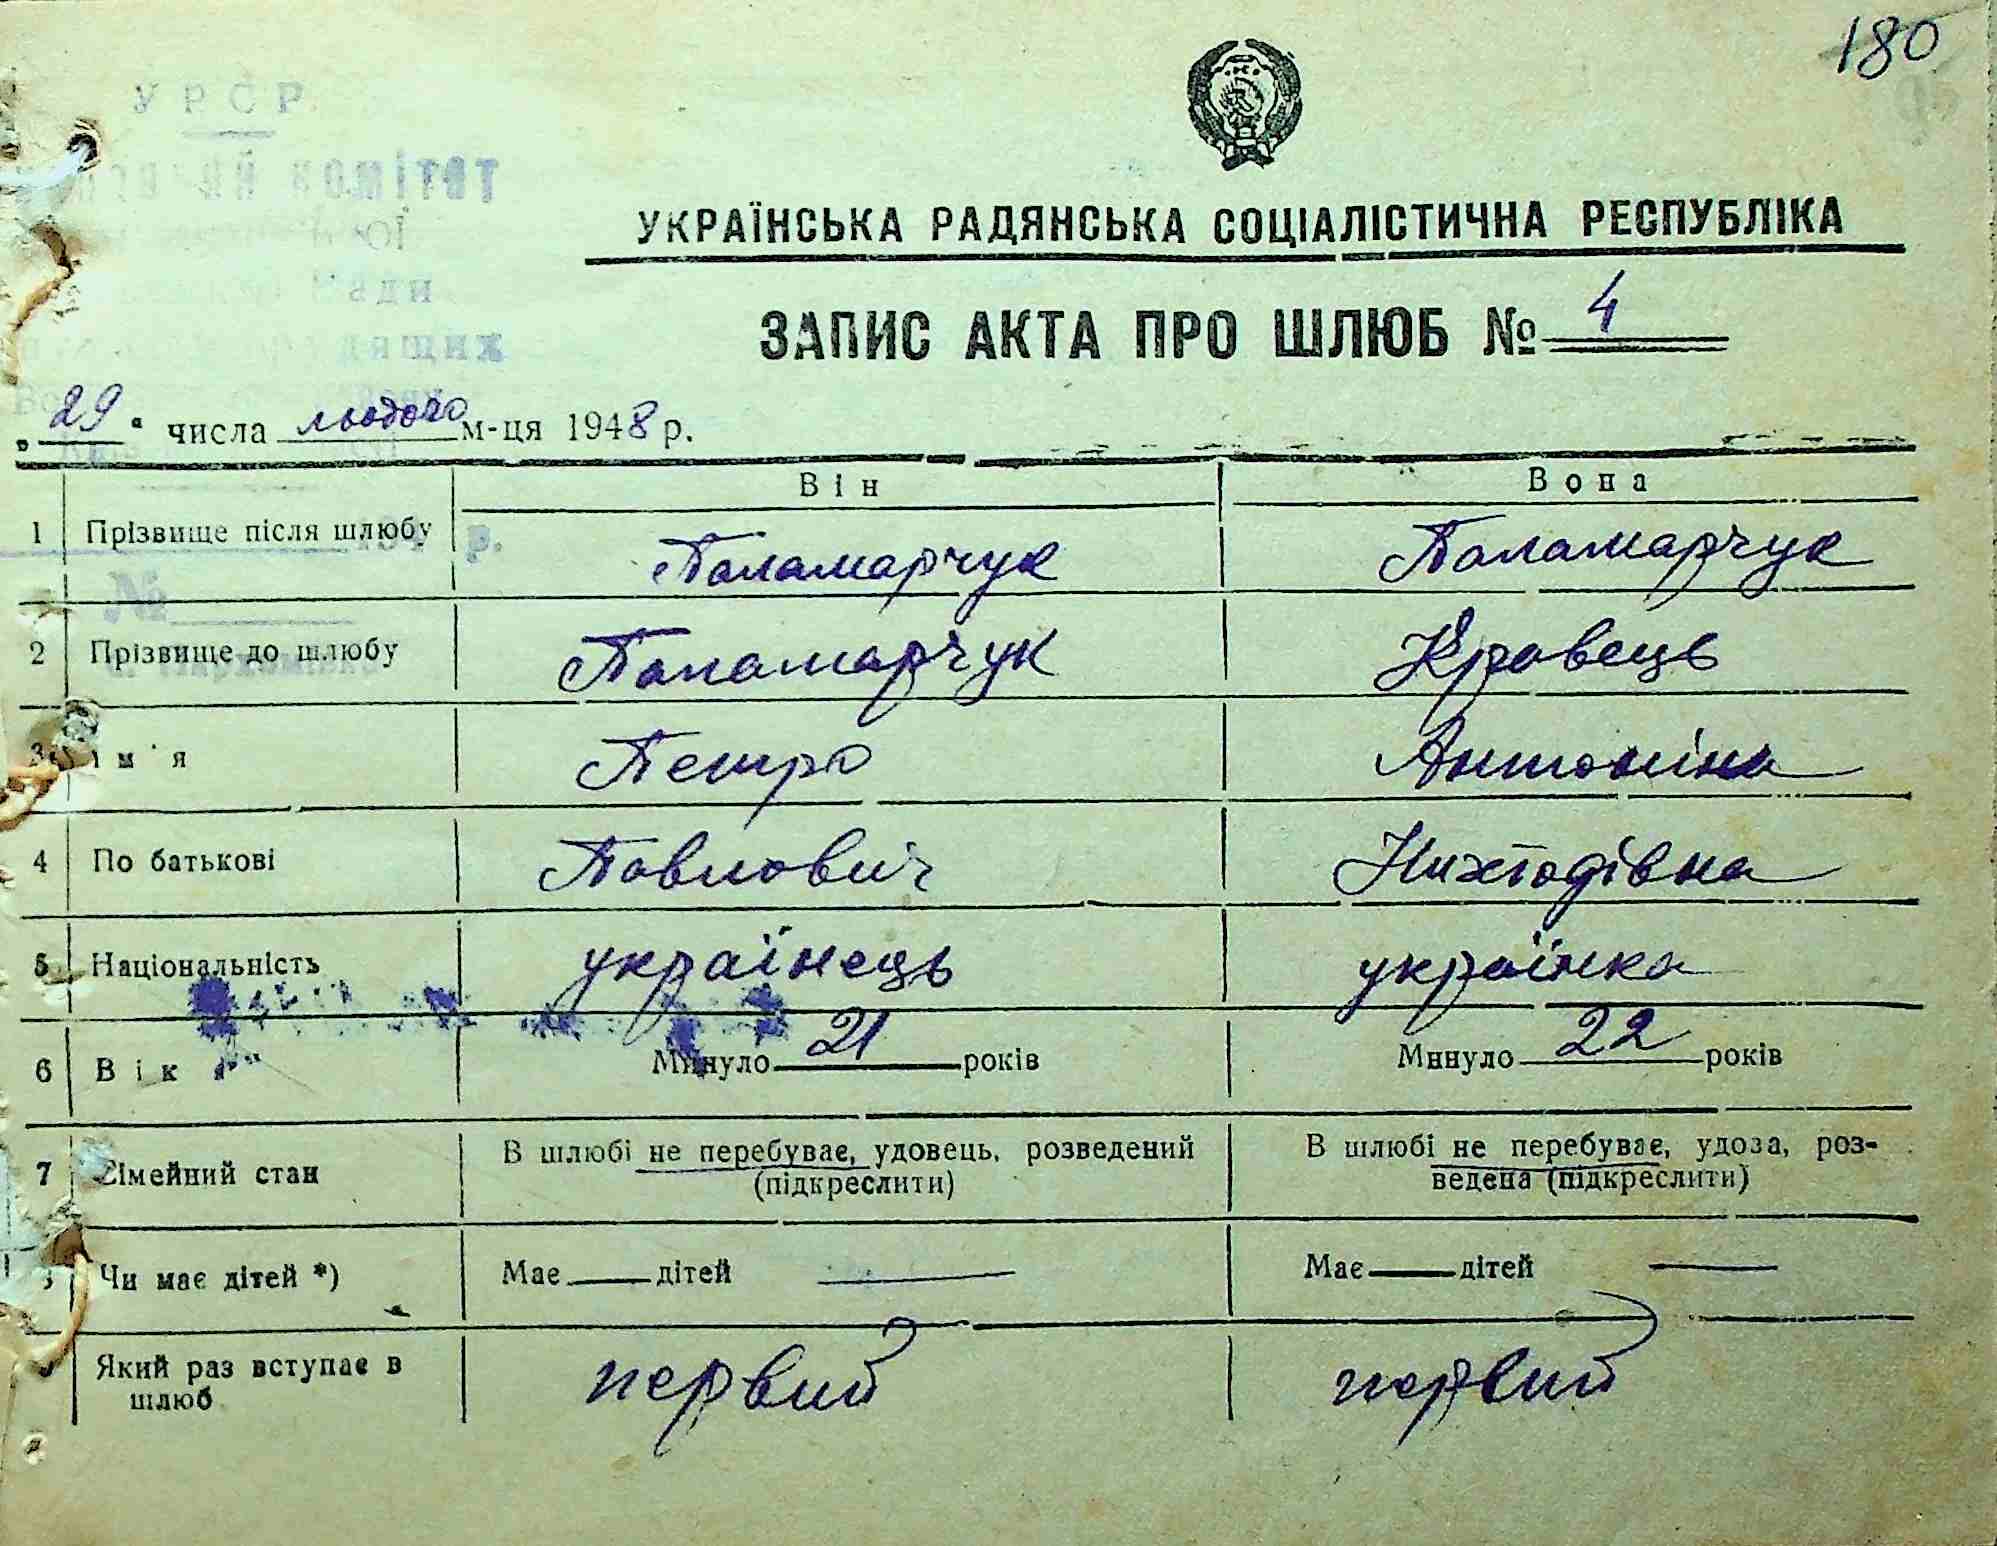 180
УРСР
комітет
ради
дящих
УКРАЇНСЬКА РАДЯНСЬКА СОЦІАЛІСТИЧНА РЕСПУБЛІКА
ЗАПИС АКТА ПРО ШЛЮБ № 4
„29“ числа лютого м-ця 1948 р.
Він Вона
1 Прізвище після шлюбу Паламарчук Паламарчук
р.
№
2 Прізвище до шлюбу Паламарчук Кравець
3 Ім'я Петро Антоніна
4 По батькові Павлович Нихтодівна
5 Національність українець українка
6 Вік Минуло 21 років Минуло 22 років
7 Сімейний стан В шлюбі не перебуває, удовець, розведений В шлюбі не перебуває, удова, роз-
(підкреслити) ведена (підкреслити)
Чи має дітей *) Має — дітей — Має — дітей —
Який раз вступає в первий первий
шлюб